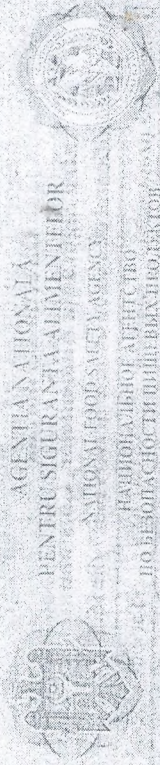 AGENȚIA NAȚIONALĂ
PENTRU SIGURANȚA ALIMENTELOR
NATIONAL FOOD SAFETY AGENCY
НАЦИОНАЛЬНОЕ АГЕНТСТВО
ПО БЕЗОПАСНОСТИ ПИЩЕВЫХ ПРОДУКТОВ